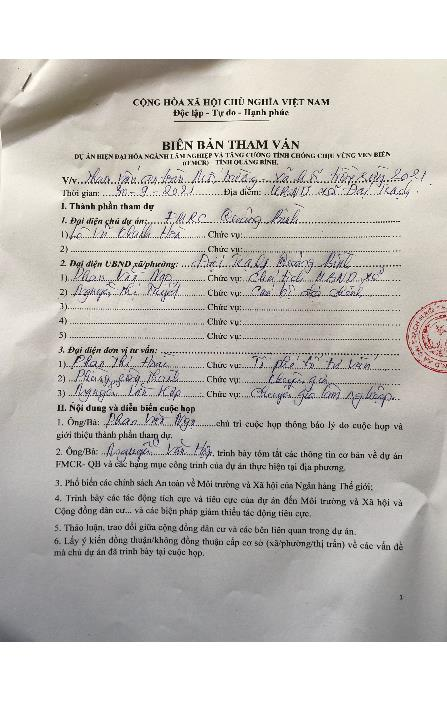 CỘNG HÒA XÃ HỘI CHỦ NGHĨA VIỆT NAM
Độc lập - Tự do - Hạnh phúc
BIÊN BẢN THAM VẤN
DỰ ÁN HIỆN ĐẠI HÓA NGÀNH LÂM NGHIỆP VÀ TĂNG CƯỜNG TÍNH CHỐNG CHỊU VÙNG VEN BIỂN
(FMCR) - TỈNH QUẢNG BÌNH.
V/v Tham vấn an toàn Môi trường - xã hội 2021
Thời gian: 30-9-2021 Địa điểm: UBND xã Đại Trạch
I. Thành phần tham dự
1. Đại diện chủ dự án: FMRC Quảng Bình
1) Chức vụ:
2) Chức vụ:
2. Đại diện UBND xã/phường: Đại Trạch, Quảng Bình
1) Phan Văn Chức vụ: Chủ tịch UBND xã
2) Nguyễn Thị Chức vụ: Cán bộ địa chính
3) Chức vụ:
4) Chức vụ:
5) Chức vụ:
3. Đại diện đơn vị tư vấn:
1) Phan Thị Chức vụ: Tổ phó tổ tư vấn
2) Phùng Chức vụ: Chuyên gia
3) Nguyễn Văn Hợp Chức vụ: Chuyên gia lâm nghiệp
II. Nội dung và diễn biến cuộc họp
1. Ông/Bà: Phan Văn chủ trì cuộc họp thông báo lý do cuộc họp và
giới thiệu thành phần tham dự.
2. Ông/Bà: Nguyễn Văn Hợp, trình bày tóm tắt các thông tin cơ bản về dự án
FMCR- QB và các hạng mục công trình của dự án thực hiện tại địa phương.
3. Phổ biến các chính sách An toàn về Môi trường và Xã hội của Ngân hàng Thế giới;
4. Trình bày các tác động tích cực và tiêu cực của dự án đến Môi trường và Xã hội và
Cộng đồng dân cư... và các biện pháp giảm thiểu tác động tiêu cực.
5. Thảo luận, trao đổi giữa cộng đồng dân cư và các bên liên quan trong dự án.
6. Lấy ý kiến đồng thuận/không đồng thuận cấp cơ sở (xã/phường/thị trấn) về các vấn đề
mà chủ dự án đã trình bày tại cuộc họp.
1